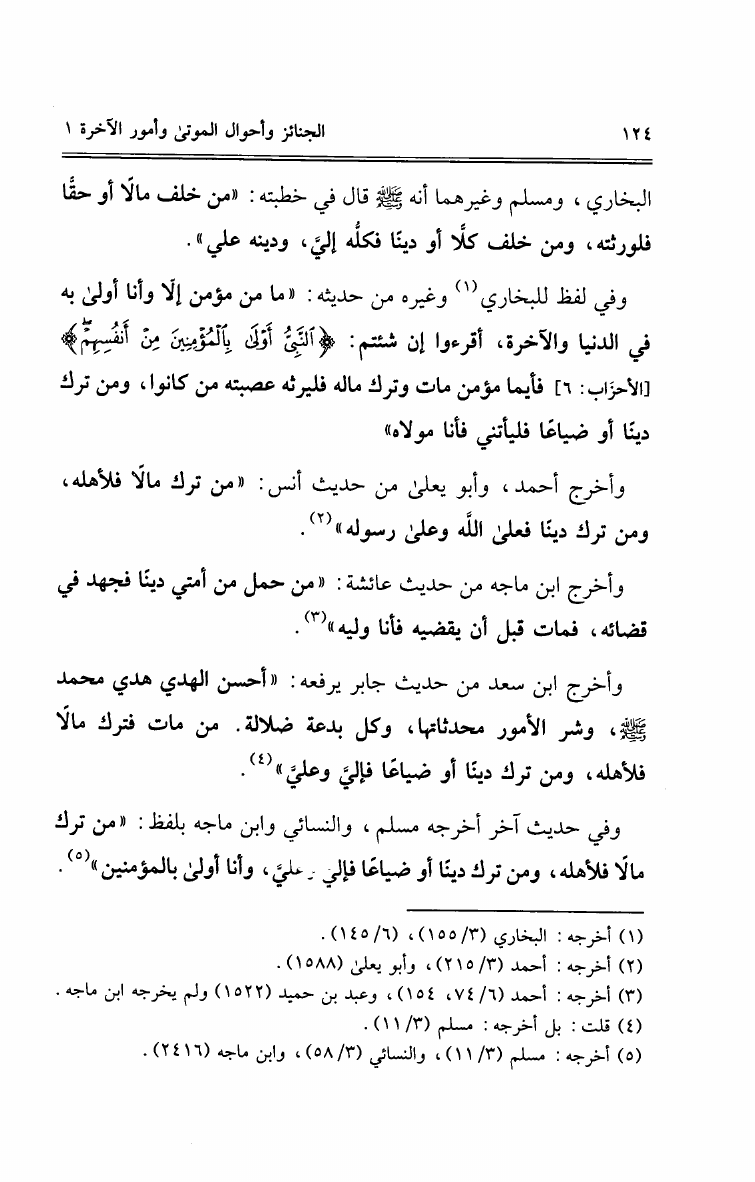 ١٢٤ الجنائز وأحوال الموتى وأمور الآخرة ١
البخاري ، ومسلم وغيرهما أنه ﷺ قال في خطبته : «من خلف مالًا أو حقًّا
فلورثته ، ومن خلف كلًّا أو دينًا فكلُّه إليَّ ، ودينه علي» .
وفي لفظ للبخاري(١) وغيره من حديثه : «ما من مؤمن إلَّا وأنا أولىٰ به
في الدنيا والآخرة، أقرءوا إن شئتم : ﴿ٱلنَّبِىُّ أَوْلَىٰ بِٱلْمُؤْمِنِينَ مِنْ أَنفُسِهِمْۖ﴾
[الأحزَاب: ٦] فأيما مؤمن مات وترك ماله فليرثه عصبته من كانوا، ومن ترك
دينًا أو ضياعًا فليأتني فأنا مولاه»
وأخرج أحمد ، وأبو يعلىٰ من حديث أنس : «من ترك مالًا فلأهله،
ومن ترك دينًا فعلىٰ اللَّه وعلىٰ رسوله»(٢) .
وأخرج ابن ماجه من حديث عائشة : «من حمل من أمتي دينًا فجهد في
قضائه، فمات قبل أن يقضيه فأنا وليه»(٣) .
وأخرج ابن سعد من حديث جابر يرفعه : «أحسن الهدي هدي محمد
ﷺ، وشر الأمور محدثاتها، وكل بدعة ضلالة. من مات فترك مالًا
فلأهله، ومن ترك دينًا أو ضياعًا فإليَّ وعليَّ»(٤) .
وفي حديث آخر أخرجه مسلم ، والنسائي وابن ماجه بلفظ : «من ترك
مالًا فلأهله، ومن ترك دينًا أو ضياعًا فإلي وعليَّ، وأنا أولىٰ بالمؤمنين»(٥) .
(١) أخرجه : البخاري (١٥٥/٣)، (١٤٥/٦) .
(٢) أخرجه : أحمد (٢١٥/٣)، وأبو يعلىٰ (١٥٨٨) .
(٣) أخرجه : أحمد (٧٤/٦، ١٥٤) ، وعبد بن حميد (١٥٢٢) ولم يخرجه ابن ماجه .
(٤) قلت : بل أخرجه : مسلم (١١/٣) .
(٥) أخرجه : مسلم (١١/٣) ، والنسائي (٥٨/٣) ، وابن ماجه (٢٤١٦) .